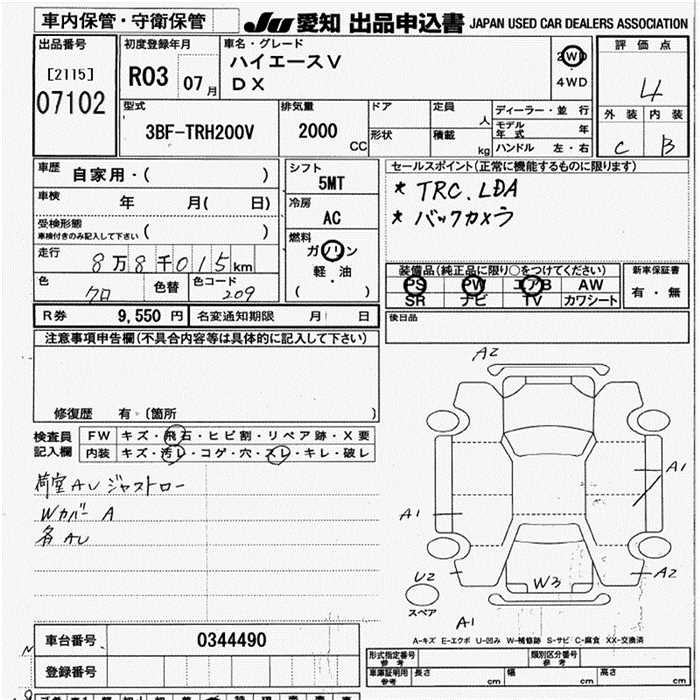 車内保管・守衛保管
JU 愛知 出品申込書 JAPAN USED CAR DEALERS ASSOCIATION
出品番号
[2115]
07102
初度登録年月
R03 07月
車名・グレード
ハイエースV
DX
2WD
4WD
評価点
4
外装 内装
C B
型式
3BF-TRH200V
排気量
2000 CC
ドア
形状
定員 人
積載 kg
ディーラー・並行
モデル年式 年
ハンドル 左・右
車歴 自家用・( )
車検 年 月( 日)
受検形態
車検付きのみ記入して下さい ( )
走行 8万8千015km
色 クロ 色替 色コード 209
シフト
5MT
冷房
AC
燃料
ガソリン
軽・油
( )
セールスポイント(正常に機能するものに限ります)
* TRC.LDA
* バックカメラ
装備品(純正品に限り○をつけてください)
PS PW エアB AW
SR ナビ TV カワシート
新車保証書
有・無
R券 9,550円 名変通知期限 月 日
後日品
注意事項申告欄(不具合内容等は具体的に記入して下さい)
修復歴 有・〔箇所 〕
検査員記入欄
FW キズ・飛石・ヒビ割・リペア跡・X要
内装 キズ・汚レ・コゲ・穴・スレ・キレ・破レ
荷室AU ジャストロー
Wカバー A
各AU
A2
A1
A1
U2
スペア
W3
A2
A1
A-キズ E-エクボ U-凹み W-補修跡 S-サビ C-腐食 XX-交換済
車台番号 0344490
登録番号
形式指定番号 参考
類別区分番号 参考
車庫証明用 参考 長さ cm 幅 cm 高さ cm